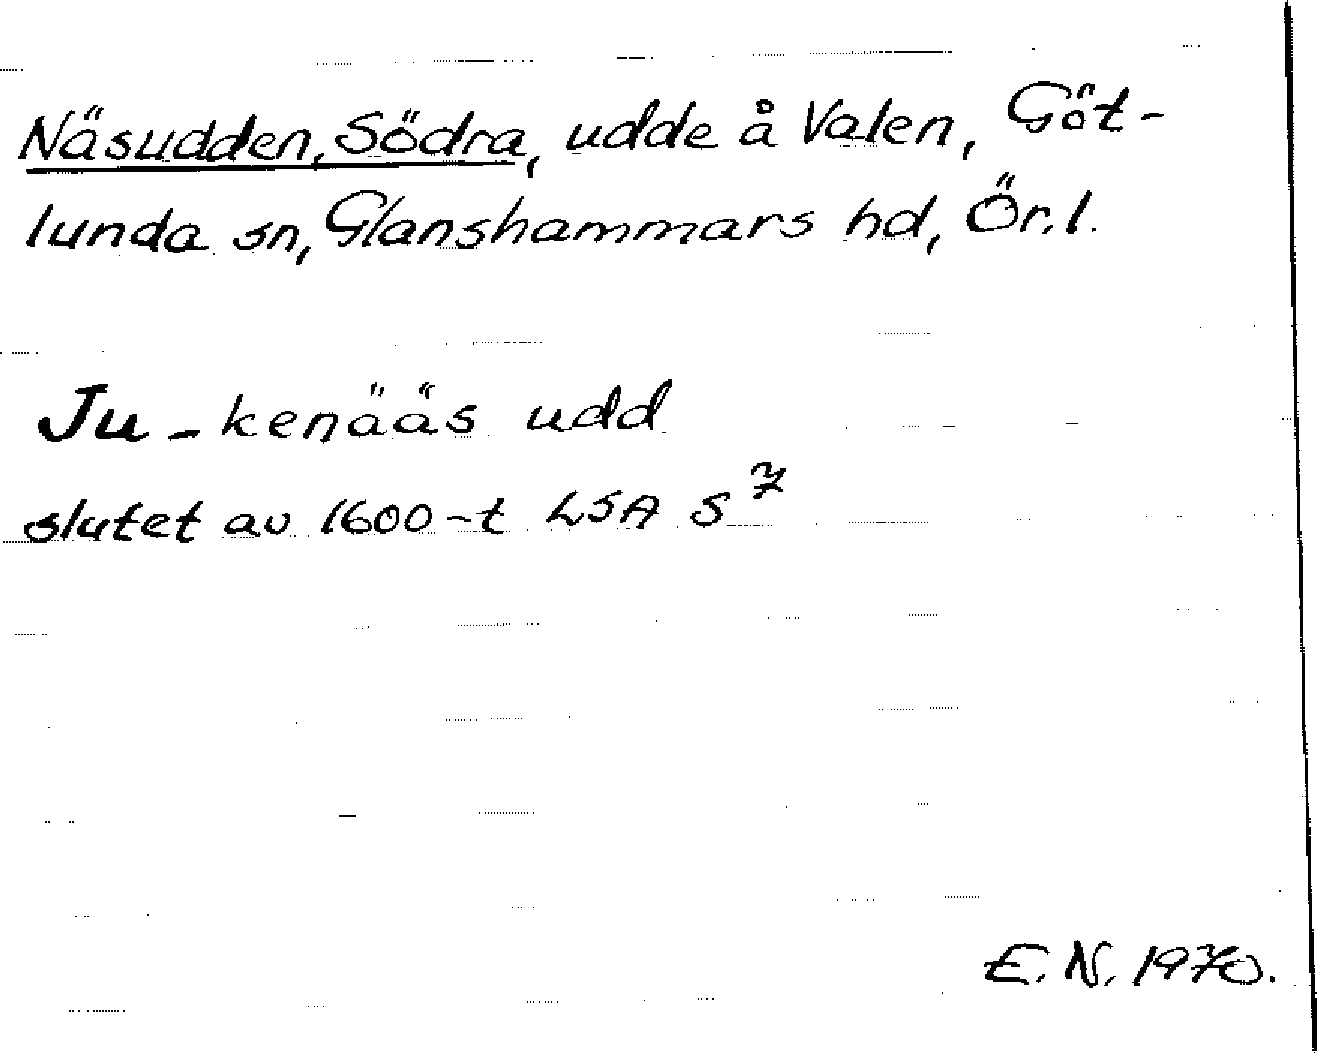 Näsudden, Södra, udde å Valen, Göt-
lunda sn, Glanshammars hd, Ör. l.
Ju - kenääs udd
slutet av 1600-t LSA S 7
E. N. 1970.